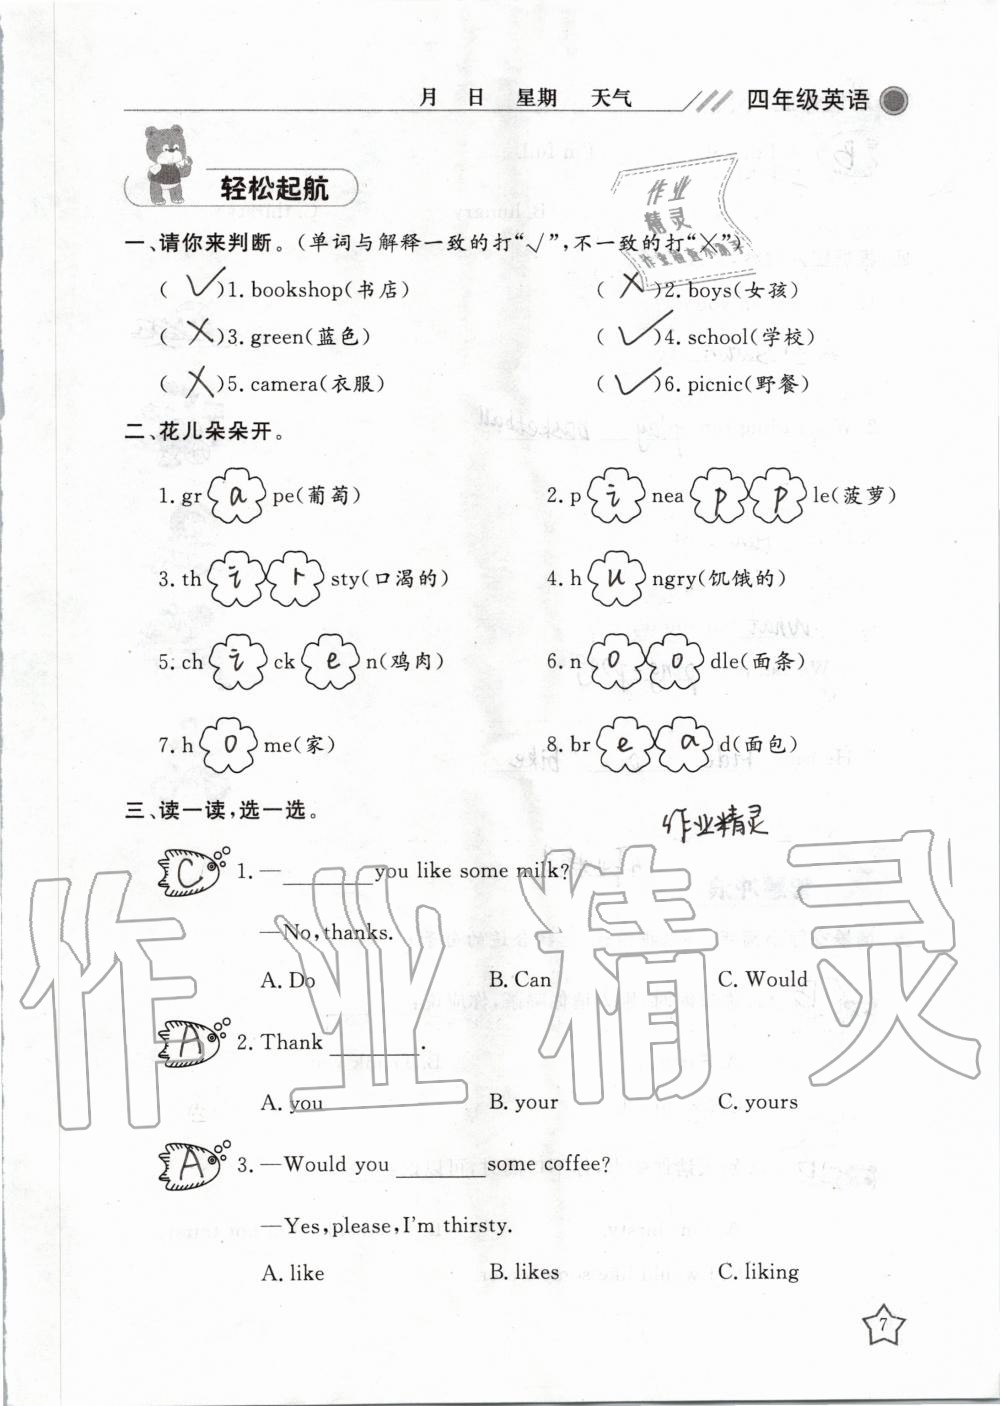 月 日 星期 天气 四年级英语
轻松起航
作业
精灵
作业检查小助手
一、请你来判断。(单词与解释一致的打“√”,不一致的打“×”)
( √ )1. bookshop(书店) ( × )2. boys(女孩)
( × )3. green(蓝色) ( √ )4. school(学校)
( × )5. camera(衣服) ( √ )6. picnic(野餐)
二、花儿朵朵开。
1. gr a pe(葡萄) 2. p i nea p p le(菠萝)
3. th i r sty(口渴的) 4. h u ngry(饥饿的)
5. ch i ck e n(鸡肉) 6. n o o dle(面条)
7. h o me(家) 8. br e a d(面包)
三、读一读,选一选。
作业精灵
C 1. —________ you like some milk?
—No, thanks.
A. Do B. Can C. Would
A 2. Thank ________.
A. you B. your C. yours
A 3. —Would you ________ some coffee?
—Yes, please, I'm thirsty.
A. like B. likes C. liking
作业精灵
7